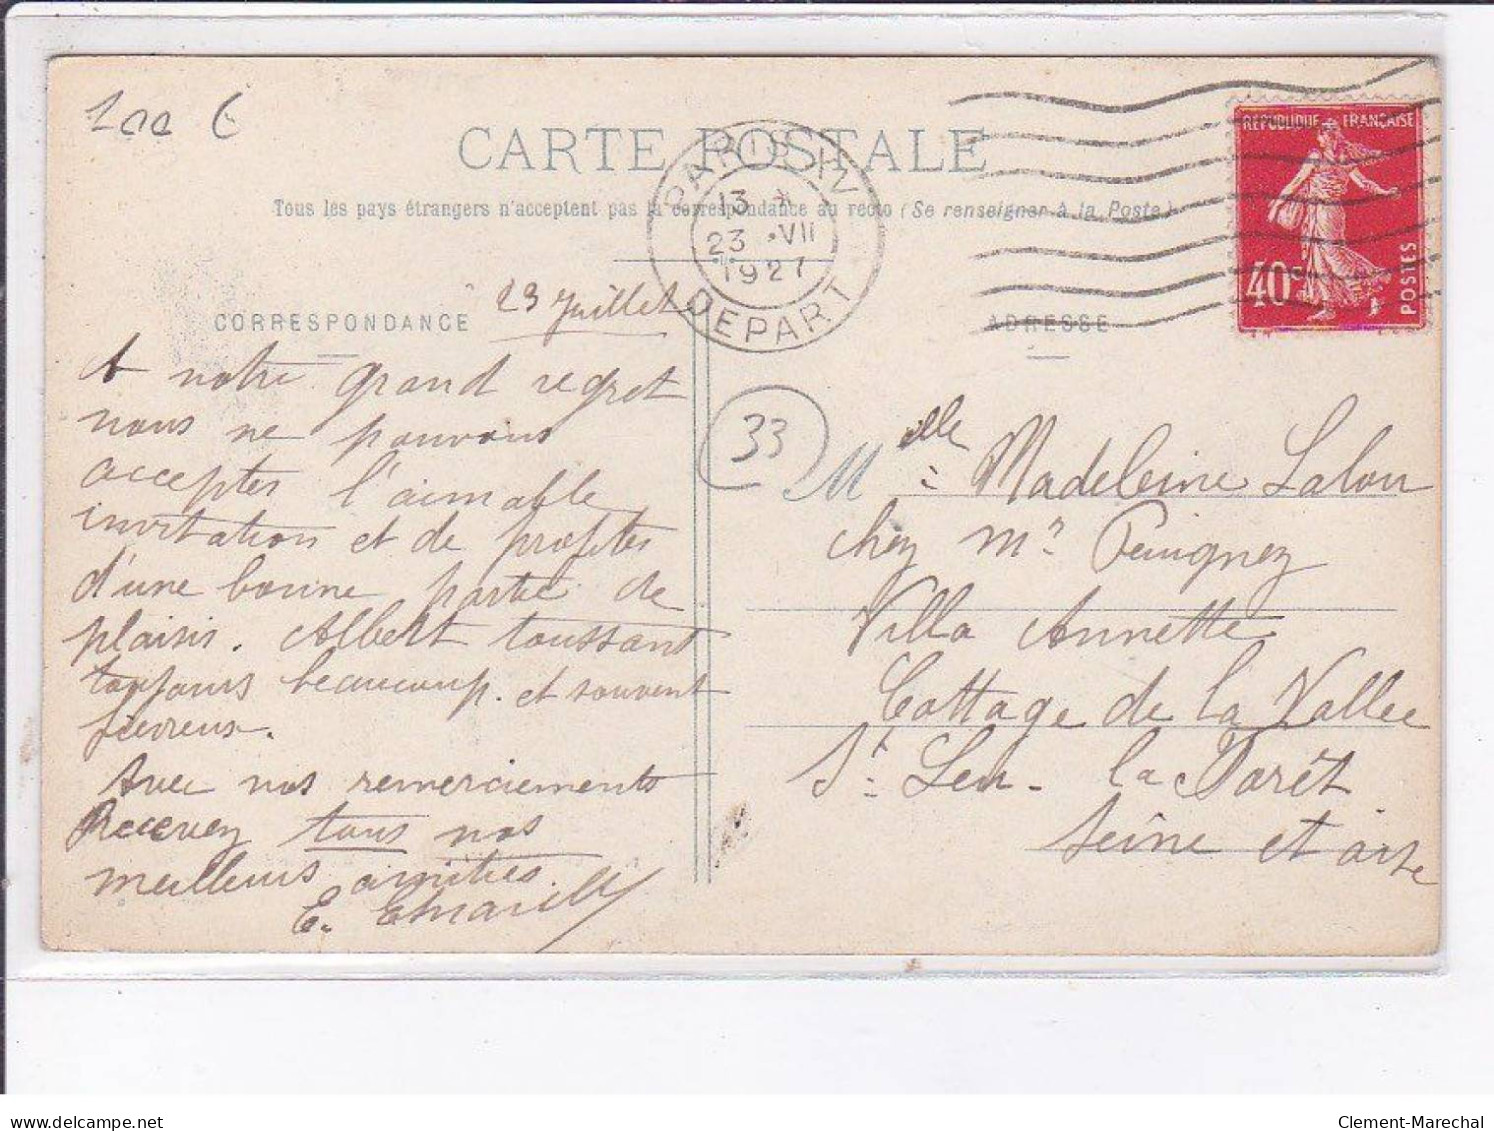 100 €
CARTE POSTALE
Tous les pays étrangers n'acceptent pas la correspondance au recto (Se renseigner à la Poste)
PARIS XIV
13 *
23 .VII
1927
DEPART
REPUBLIQUE FRANÇAISE
40c
POSTES
CORRESPONDANCE
23 Juillet
A notre grand regret
nous ne pouvons
accepter l'aimable
invitation et de profiter
d'une bonne partie de
plaisir. Albert toussant
toujours beaucoup. et souvent
fievreux.
Avec nos remerciements
Recevez tous nos
meilleurs amitiés.
E.
33
ADRESSE
Melle Madeleine Lalou
chez Mr
Villa Annette
Cottage de la Vallee
St. Leu - la Forêt
Seine et Oise
delcampe.net
Clement-Marechal